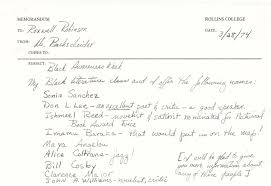 MEMORANDUM
ROLLINS COLLEGE
TO: Boxwell-Robinson
FROM: Dr. Backscheider
DATE: 3/28/74
COPIES TO:
SUBJECT: Black Awareness Week
My Black literature class and I offer the following names:
Sonia Sanchez
Don L. Lee - excellent poet & critic - a good speaker
Ishmael Reed - novelist & satirist nominated for National
Book Award twice
Imamu Baraka - that would put us on the map!
Maya Angelou
Alice Coltrane - jazz!
Bill Cosby
Clarence Major
John A Williams - novelist, critic
I'd will be glad to give
you more information
about any of these